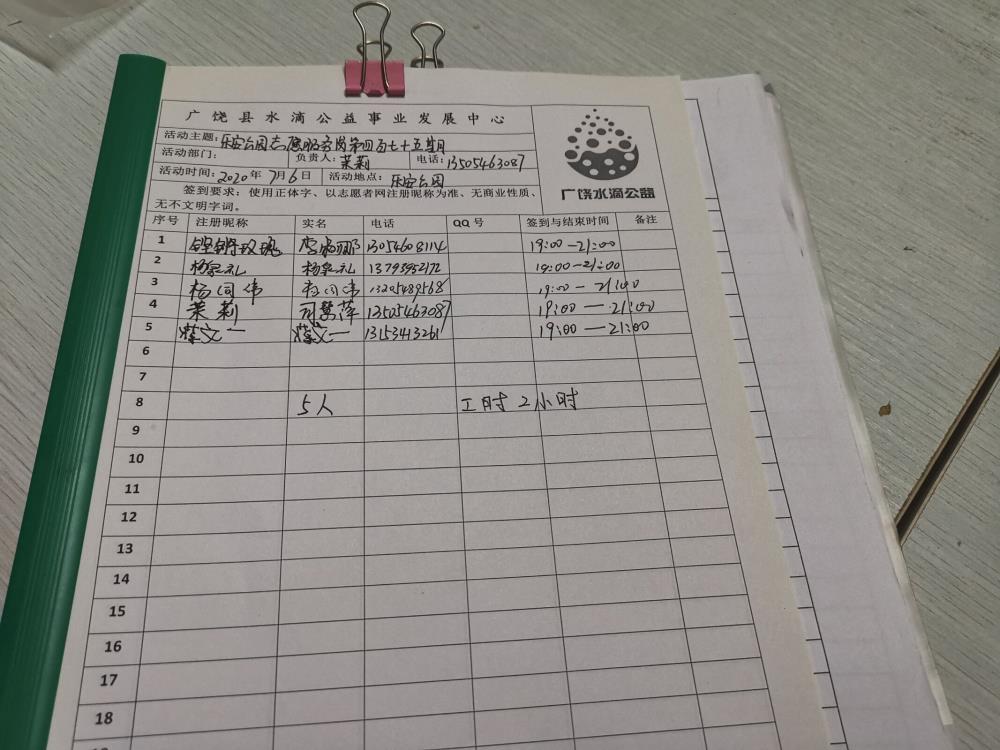 广饶县水滴公益事业发展中心
活动主题：乐安公园志愿服务岗第四百七十五期
活动部门： 负责人：茉莉 电话：13505463087
活动时间：2020年7月6日 活动地点：乐安公园
签到要求：使用正体字、以志愿者网注册昵称为准、无商业性质、
无不文明字词。
广饶水滴公益
序号 注册昵称 实名 电话 QQ号 签到与结束时间 备注
1 铿锵玫瑰 13054608114 19:00-21:00
2 杨泉礼 杨泉礼 13793952172 19:00-21:00
3 杨同伟 13205489568 19:00-21:00
4 茉莉 司慧萍 13505463087 19:00—21:00
5 蔡文一 蔡文一 13153413261 19:00—21:00
6
7
8 5人 工时 2小时
9
10
11
12
13
14
15
16
17
18